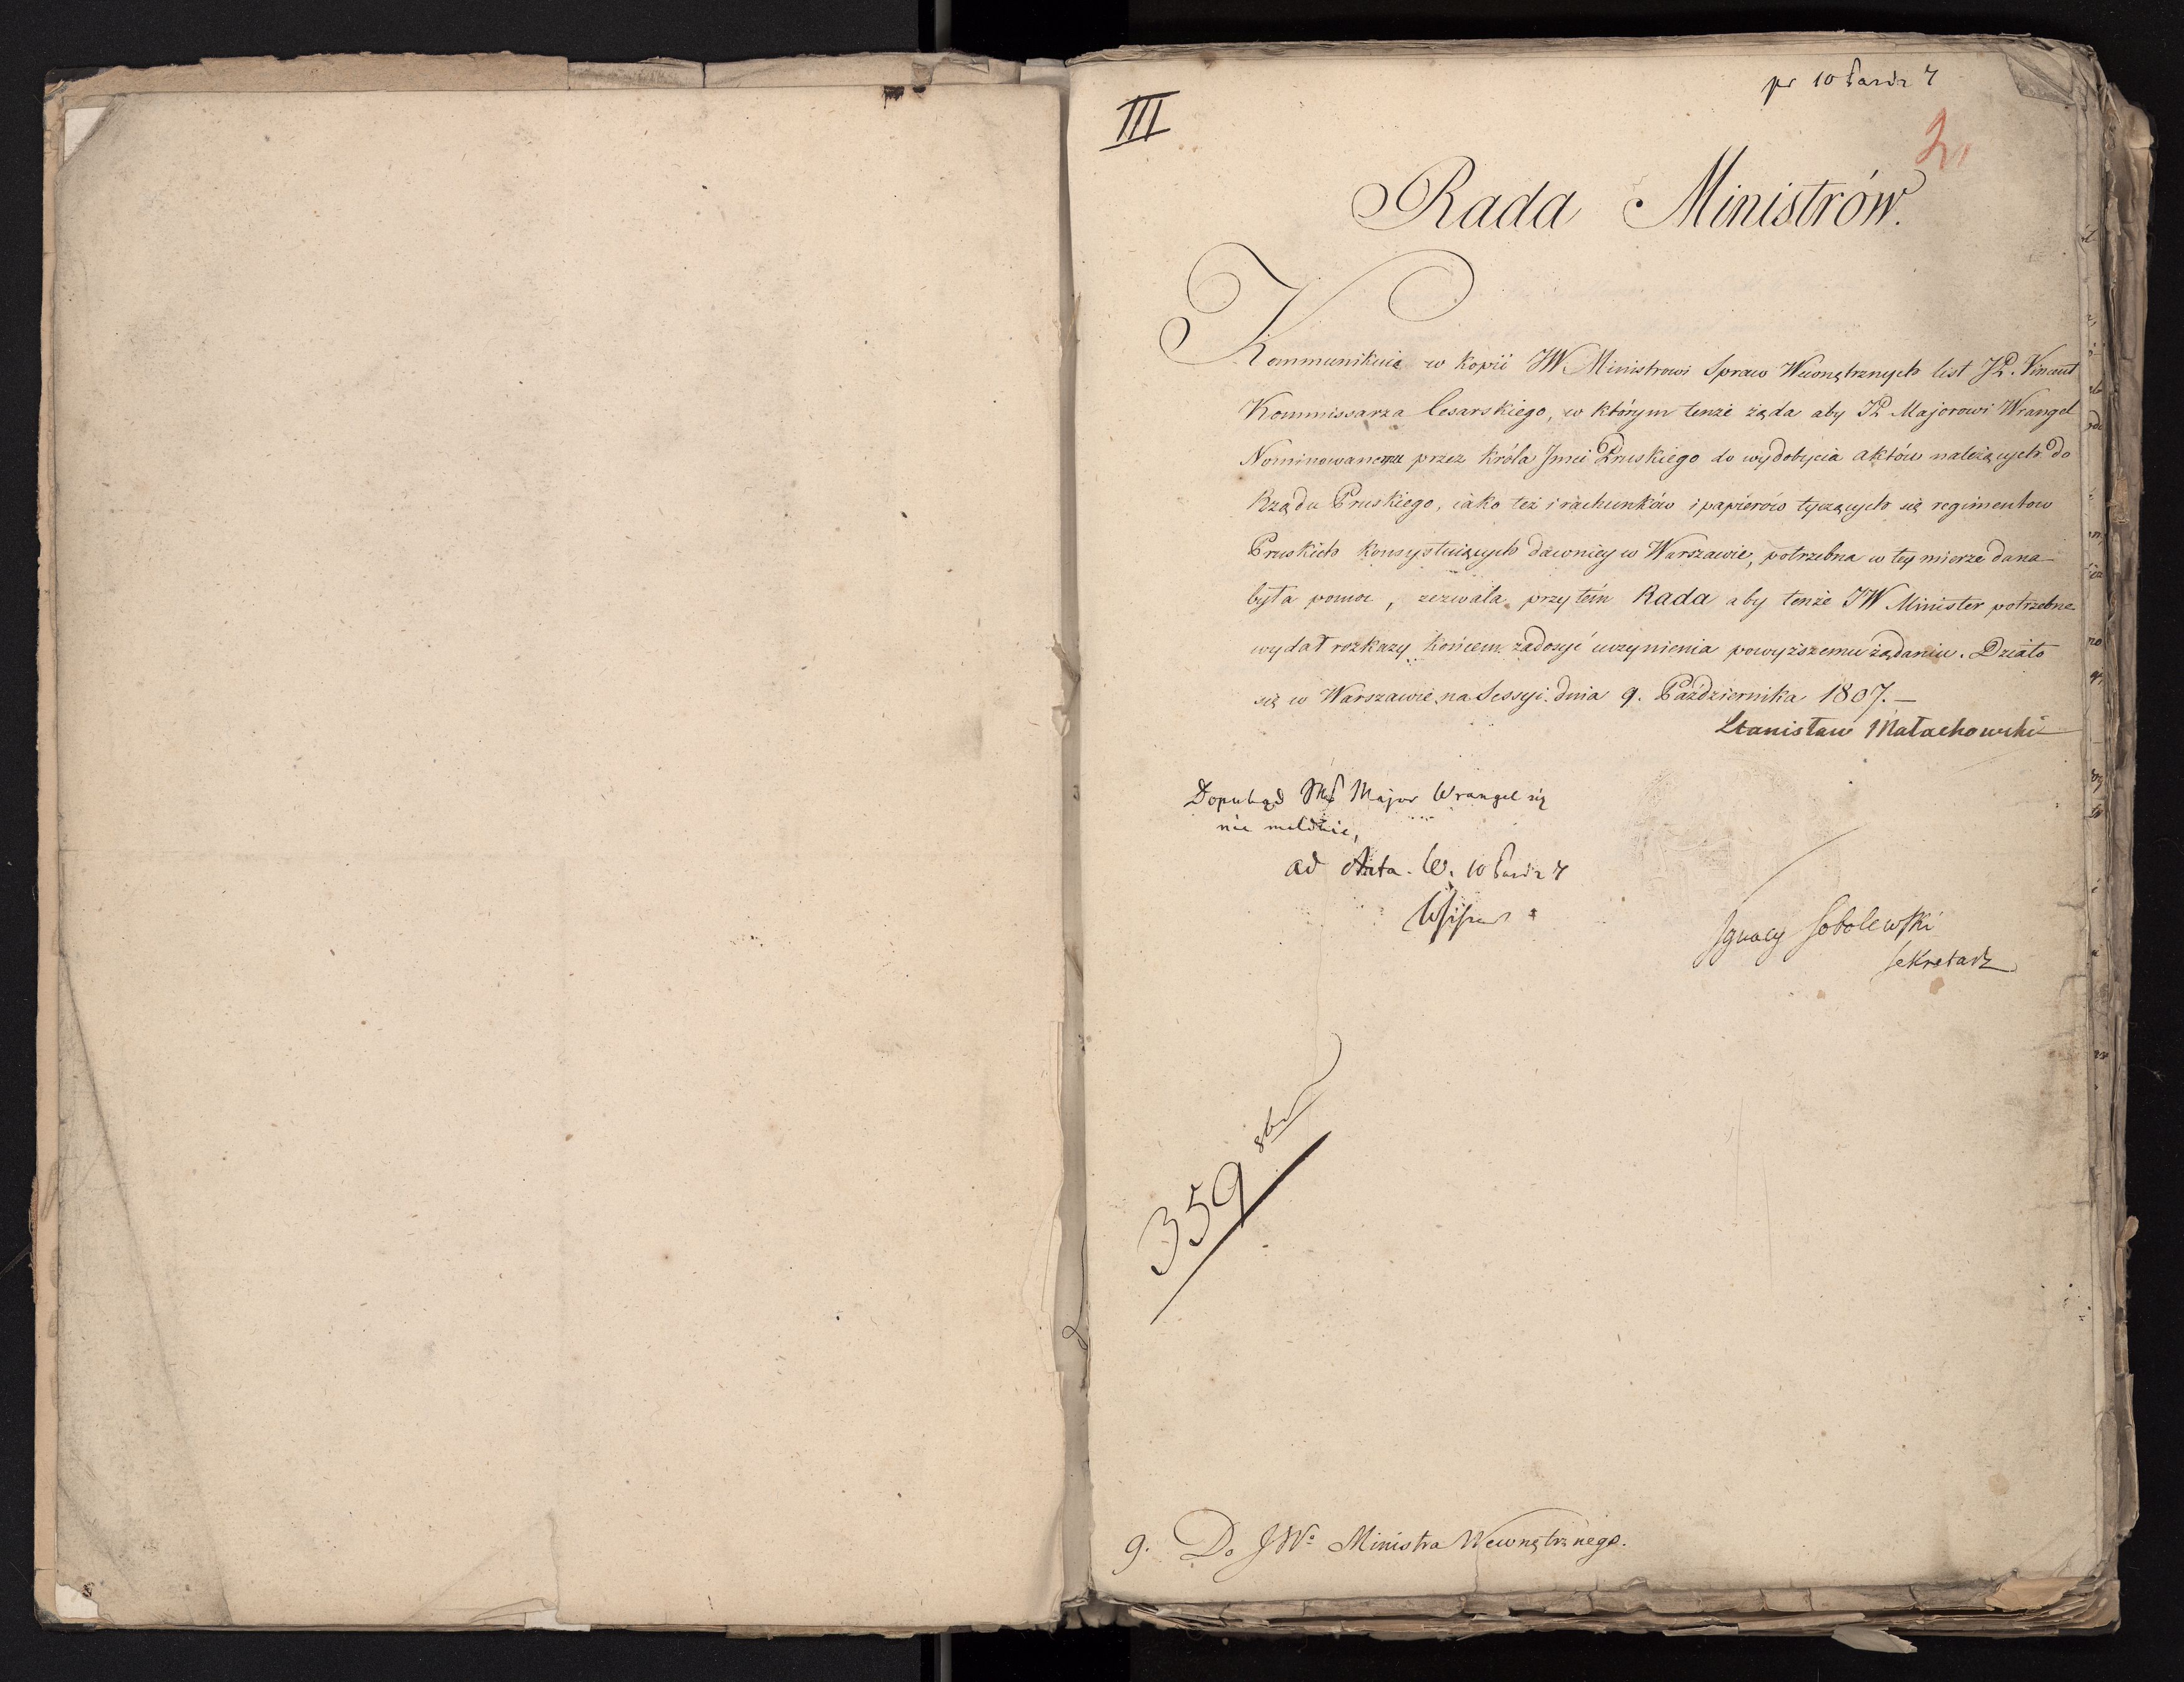 pr 10 Paźdr 7
III
2
Rada Ministrów.
Kommunikuie w kopii JW Ministrowi Spraw Wewnętrznych list JP. Vincent
Kommissarza Cesarskiego, w którym tenże żąda aby JP Majorowi Wrangel
Nominowanemu przez Króla Jmci Pruskiego do wydobycia aktów należących do
Rządu Pruskiego, iako też i rachunków i papierów tyczących się regimentow
Pruskich konsystuiących dawniey w Warszawie, potrzebna w tey mierze dana
była pomoc, zezwala przytém Rada aby tenże JW Minister potrzebne
wydał rozkazy końcem zadosyć uczynienia powyższemu żądaniu. Działo
się w Warszawie na Sessyi dnia 9. Października 1807.—
Stanisław Małachowski
Dopukąd Major Wrangel się
nie melduie,
ad Acta. W. 10 Paźdr 7
Ignacy Sobolewski
Sekretarz
359 8br
9. Do JWo Ministra Wewnętrznego.